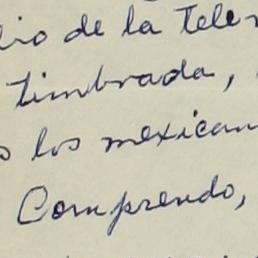 dio de la Tele
timbrada,
s los mexican
Comprendo,